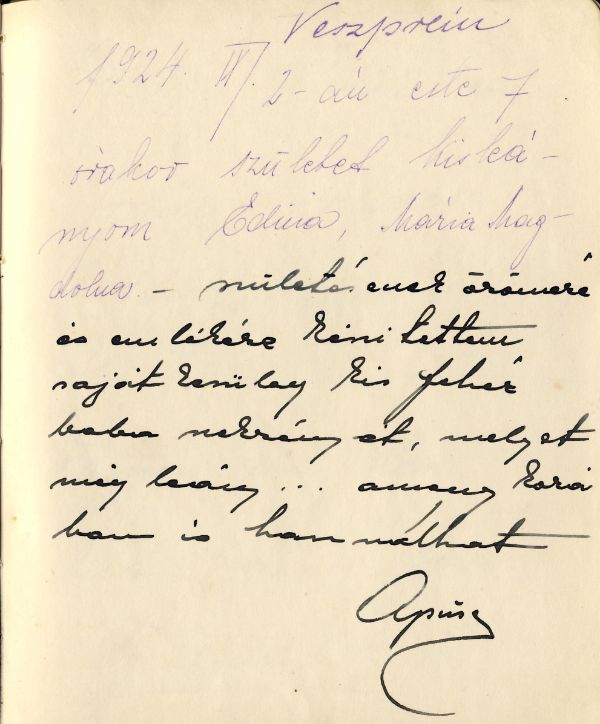 Veszprém
1924. II/ 2-án este 7
órakor született kisleá-
nyom Edina, Mária Mag-
dolna. - születésenek örömére
és emlékére készitettem
saját kezüleg kis fehér
baba szekrényét, melyet
még leány ... asszony korá
ban is használhat
Apus